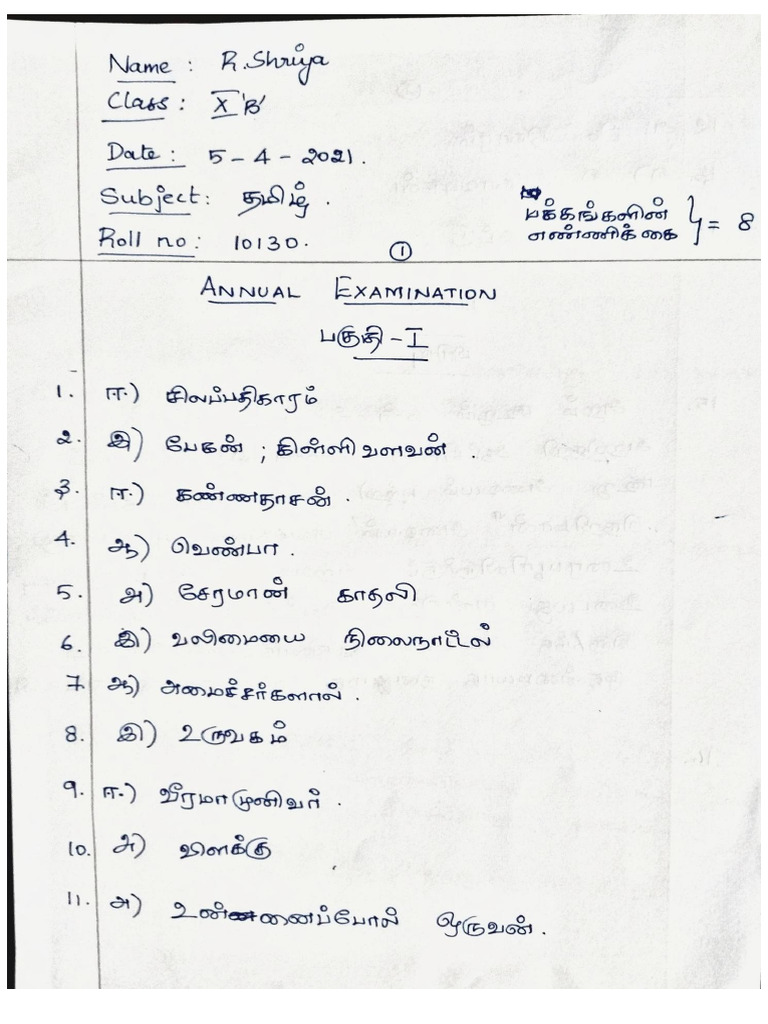 Name : R. Shriya
Class : X 'B'
Date : 5 - 4 - 2021.
Subject : தமிழ் .
Roll no : 10130.
பக்கங்களின்
எண்ணிக்கை } = 8
1
ANNUAL EXAMINATION
பகுதி - I
1. ஈ.) சிலப்பதிகாரம்
2. இ) பேகன் ; கிள்ளிவளவன் .
3. ஈ.) கண்ணதாசன் .
4. ஆ) வெண்பா .
5. அ) சேரமான் காதலி
6. இ) வலிமையை நிலைநாட்டல்
7. ஆ) அமைச்சர்களால் .
8. இ) உருவகம்
9. ஈ.) வீரமாமுனிவர் .
10. அ) விளக்கு
11. அ) உன்னைப்போல் ஒருவன் .